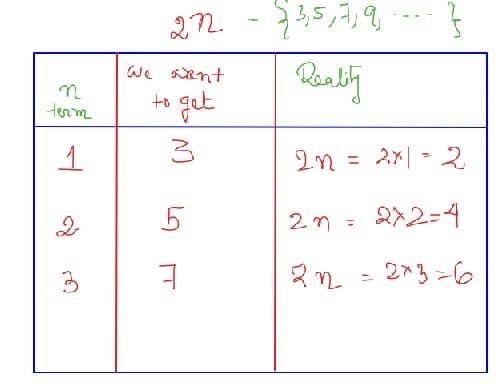 2n - {3,5,7,9, ---- }
n term
we want to get
Reality
1 3 2n = 2×1 = 2
2 5 2n = 2×2=4
3 7 2n = 2×3=6